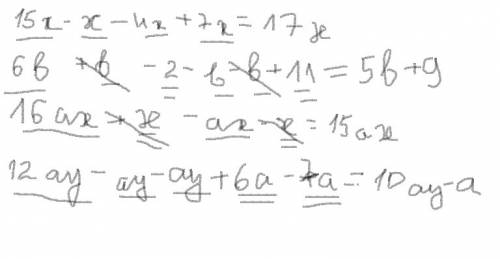 15x - x - 4x + 7x = 17x
6b + b - 2 - b - b + 11 = 5b + 9
16ax + x - ax - x = 15ax
12ay - ay - ay + 6a - 7a = 10ay - a